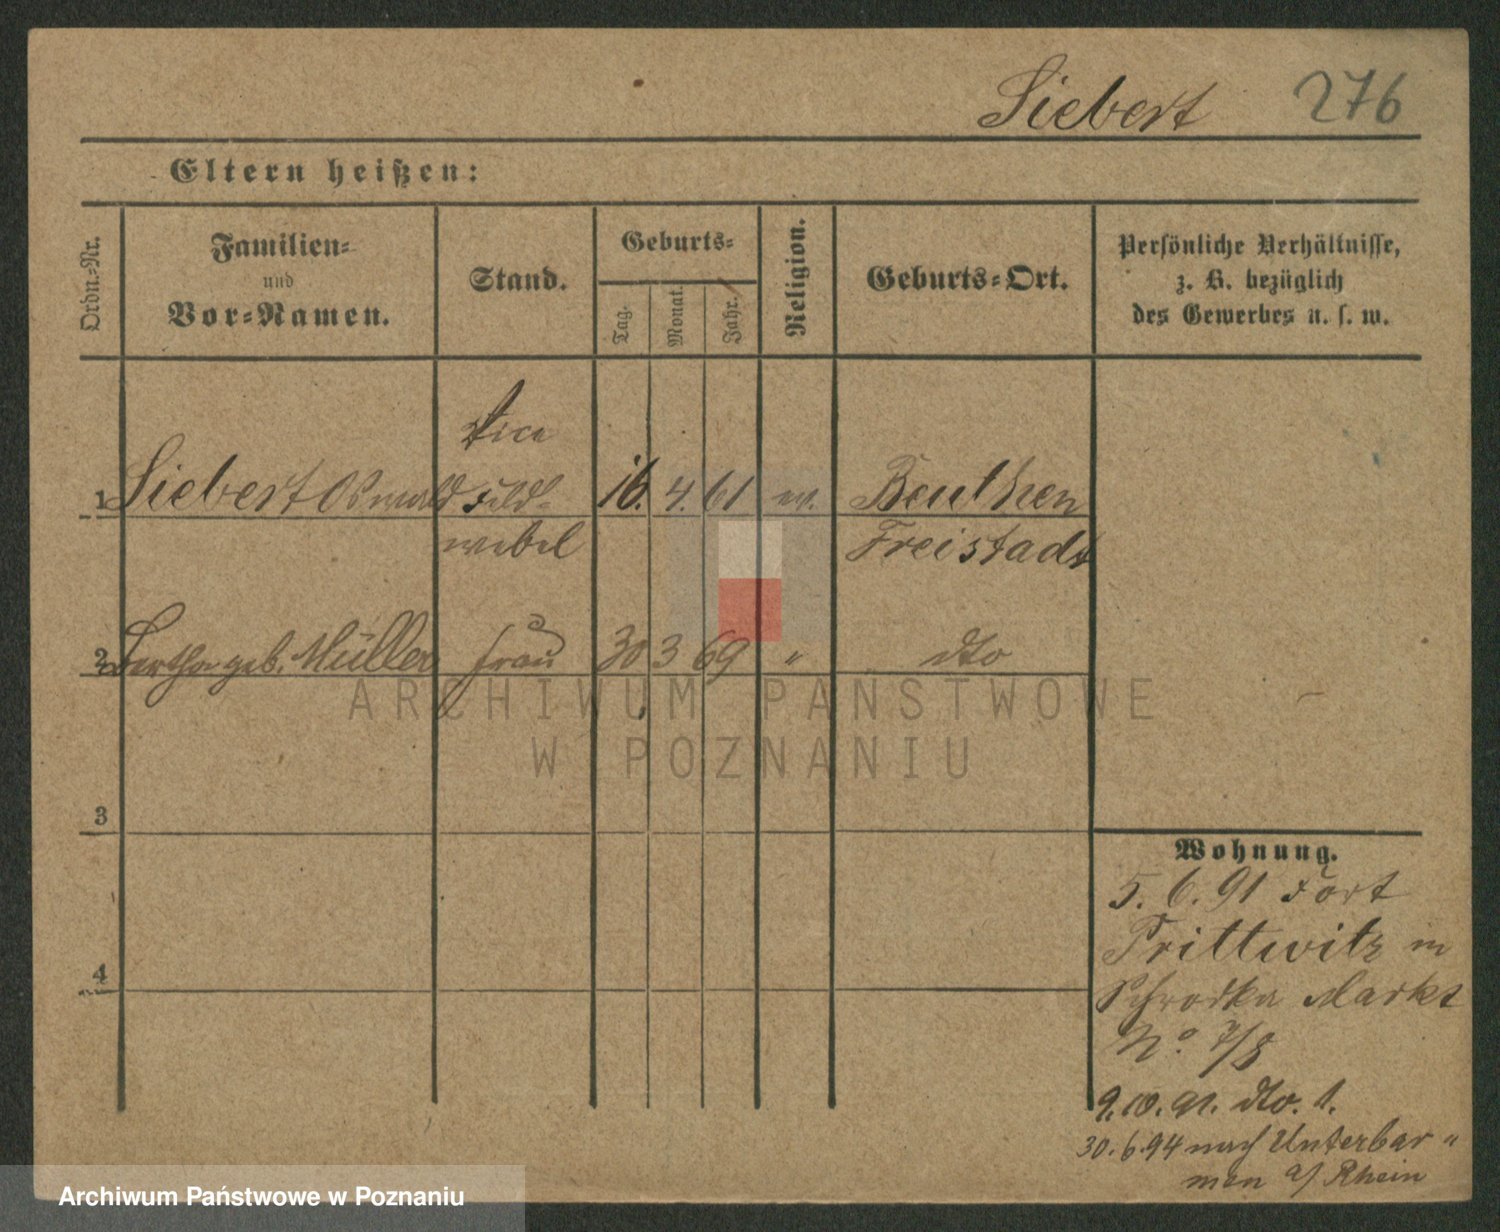 Siebert 276
Eltern heißen:
Ordn.-Nr.
Familien-
und
Vor-Namen.
Stand.
Geburts-
Tag.
Monat.
Jahr.
Religion.
Geburts-Ort.
Persönliche Verhältnisse,
z. B. bezüglich
des Gewerbes u. s. w.
Vice
1 Siebert Oswald Feld- 16. 4. 61 ev. Beuthen
webel Freistadt
2 Bertha geb. Müller Frau 30 3 69 " dto
3
4
Wohnung.
5. 6. 91 Fort
Prittwitz in
Schrodka Markt
No. 7/8
9. 10. 91. dto. 1.
30. 6. 94 nach Unterbar "
men a/ Rhein
ARCHIWUM PAŃSTWOWE
W POZNANIU
Archiwum Państwowe w Poznaniu